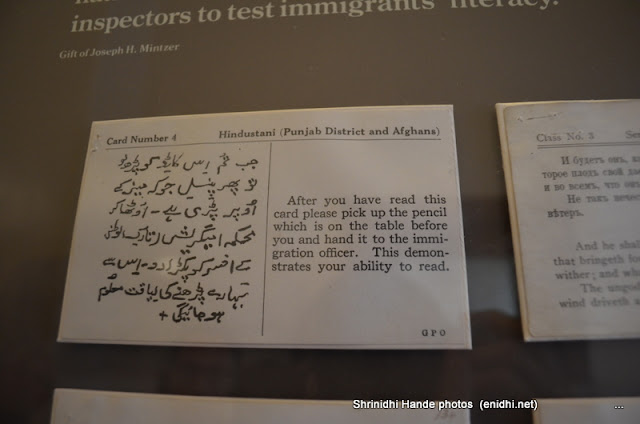 inspectors to test immigrants' literacy.
Gift of Joseph H. Mintzer
Card Number 4
Hindustani (Punjab District and Afghans)
جب تم اِس کارڈ کو پڑھ
پھر پنسل جو کہ میز کے
اُوپر پڑی ہے۔ اُوٹھا کر
محکمہ امیگریشن
کے افسر کو پکڑا دو۔ اِس سے
تمہارے پڑھنے کی لیاقت معلُوم
ہو جائیگی +
After you have read this
card please pick up the pencil
which is on the table before
you and hand it to the immi-
gration officer. This demon-
strates your ability to read.
GPO
Class No. 3
И будетъ онъ,
торое плодъ свой
и во всемъ, что онъ
Не такъ
вѣтеръ.
And he sha
that bringeth fo
wither; and wh
The ungod
wind driveth a
Shrinidhi Hande photos (enidhi.net)
...